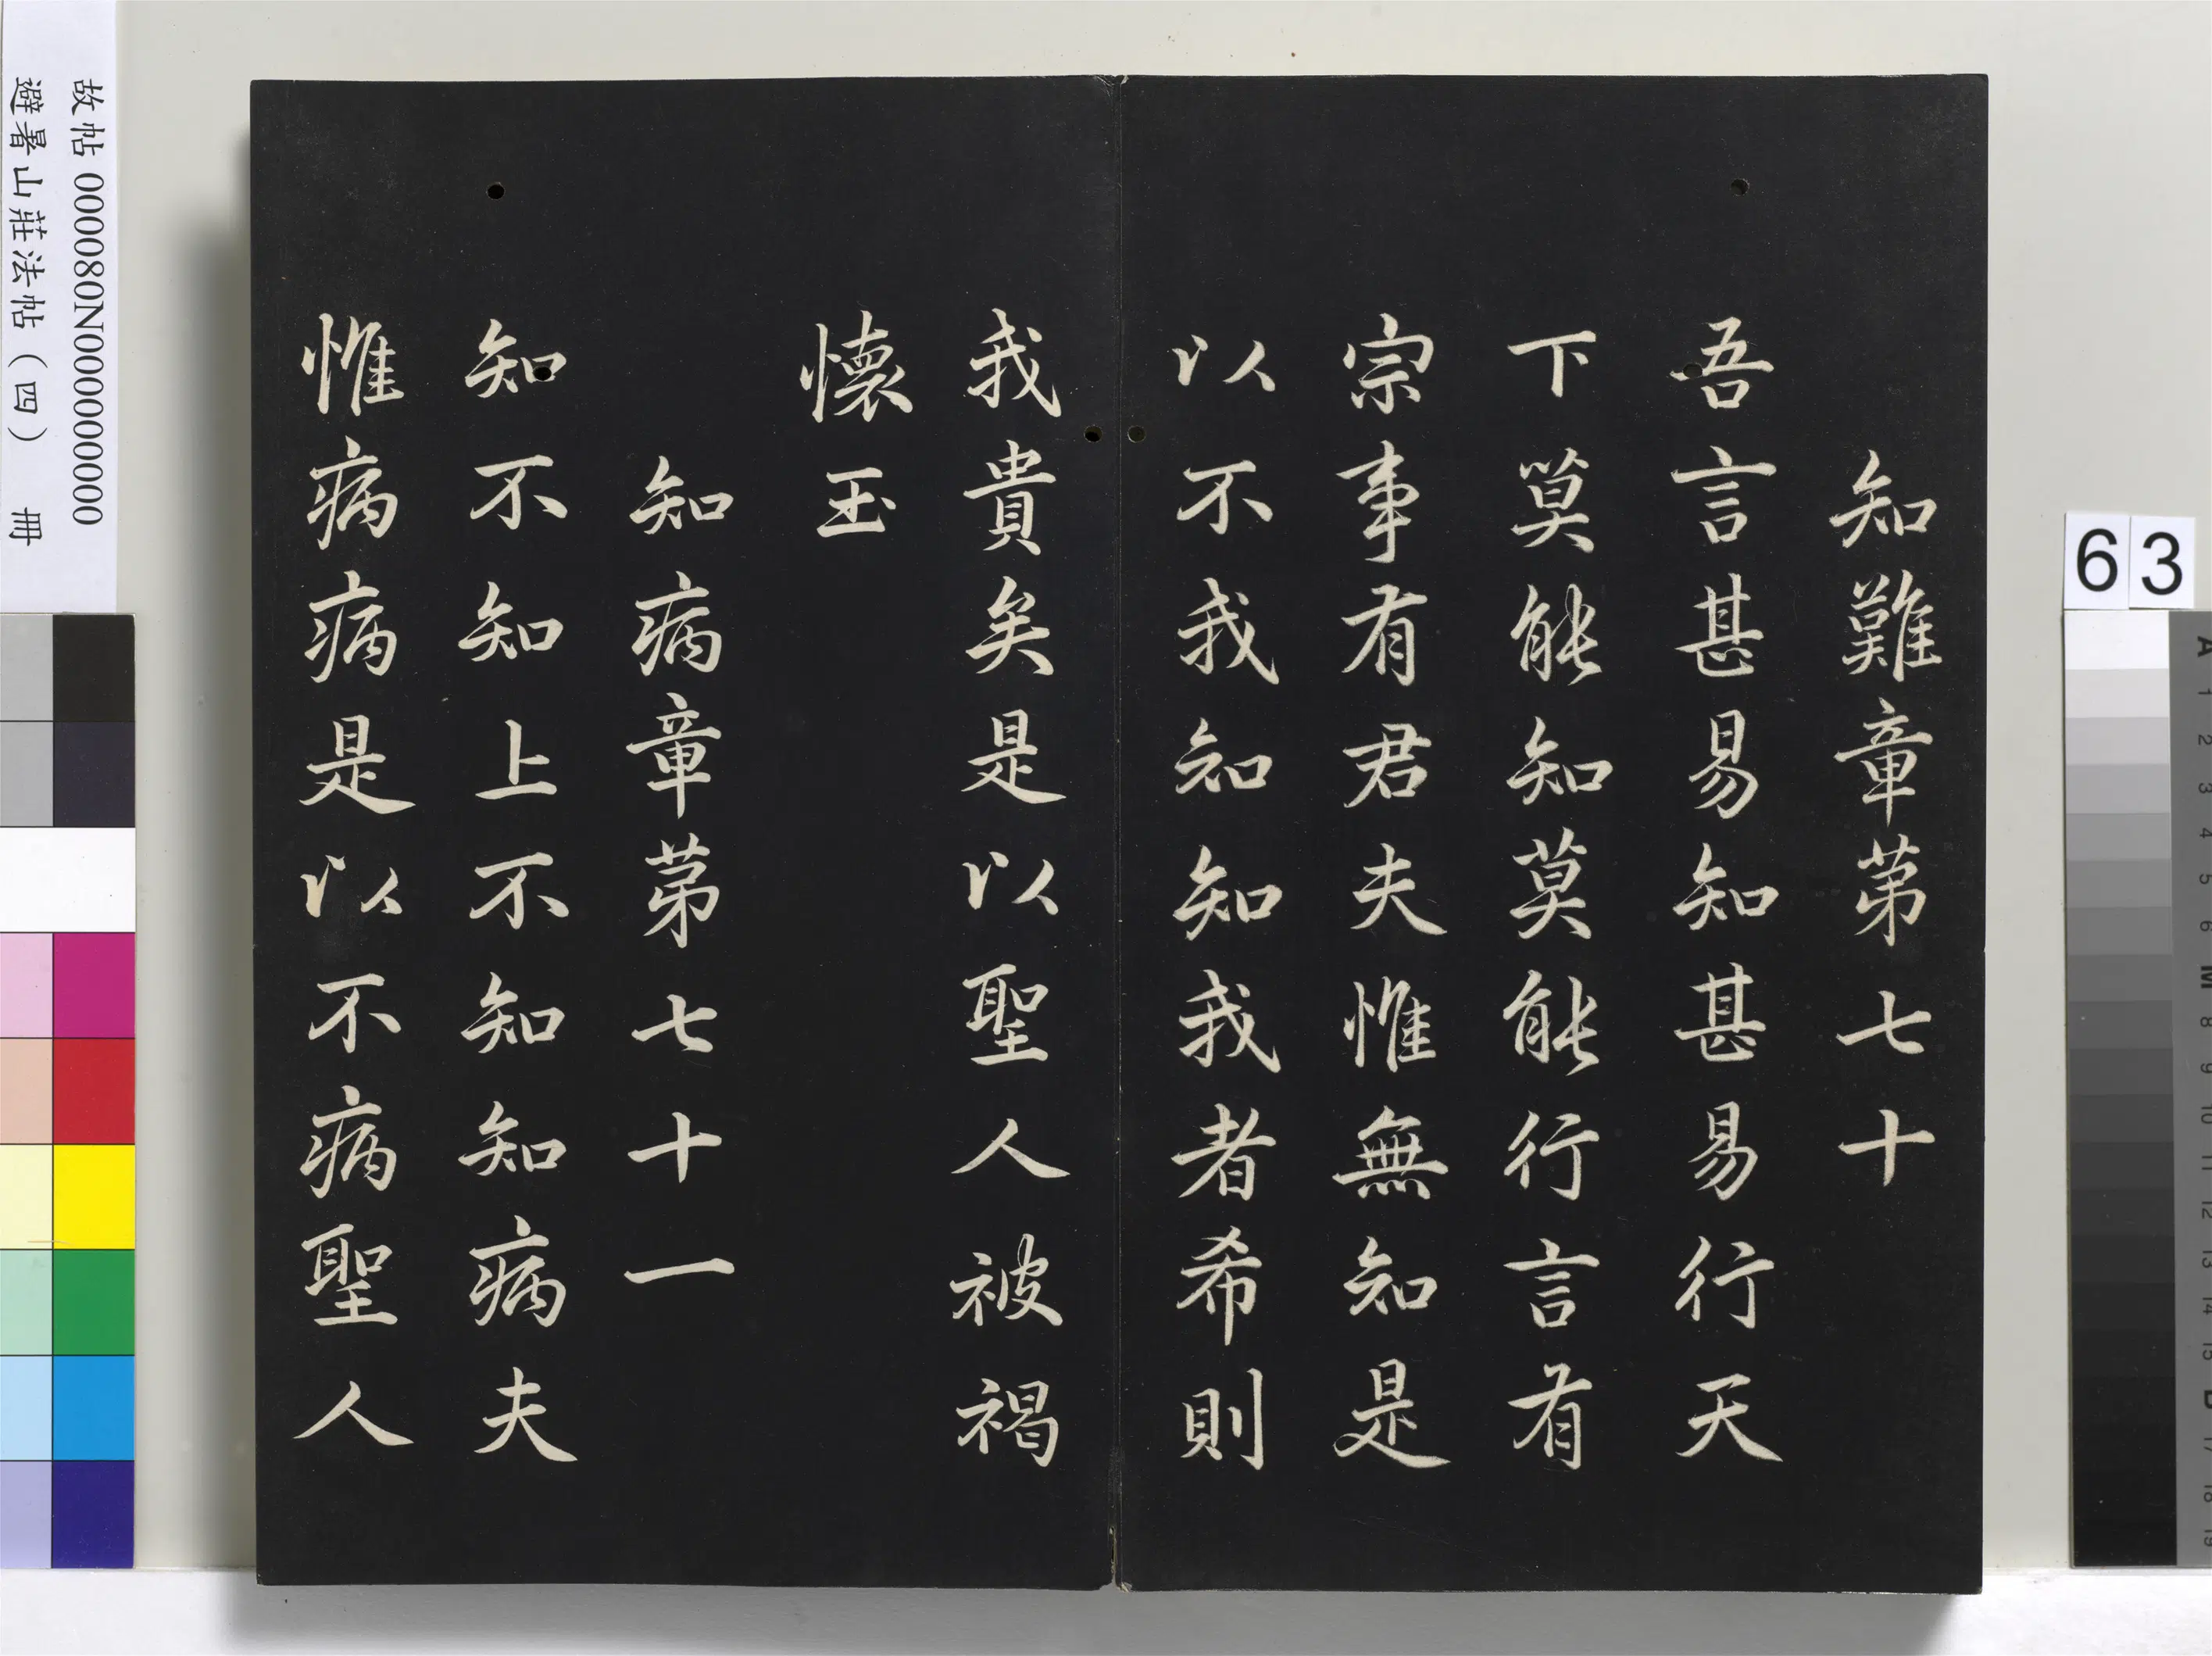 知難章苐七十
吾言甚易知甚易行天
下莫能知莫能行言有
宗事有君夫惟無知是
以不我知知我者希則
我貴矣是以聖人被褐
懷玉
知病章苐七十一
知不知上不知知病夫
惟病病是以不病聖人
故帖 000080N000000000
避暑山莊法帖（四） 冊
63
A 1 2 3 4 5 6 M 8 9 10 11 12 13 14 15 B 17 18 19